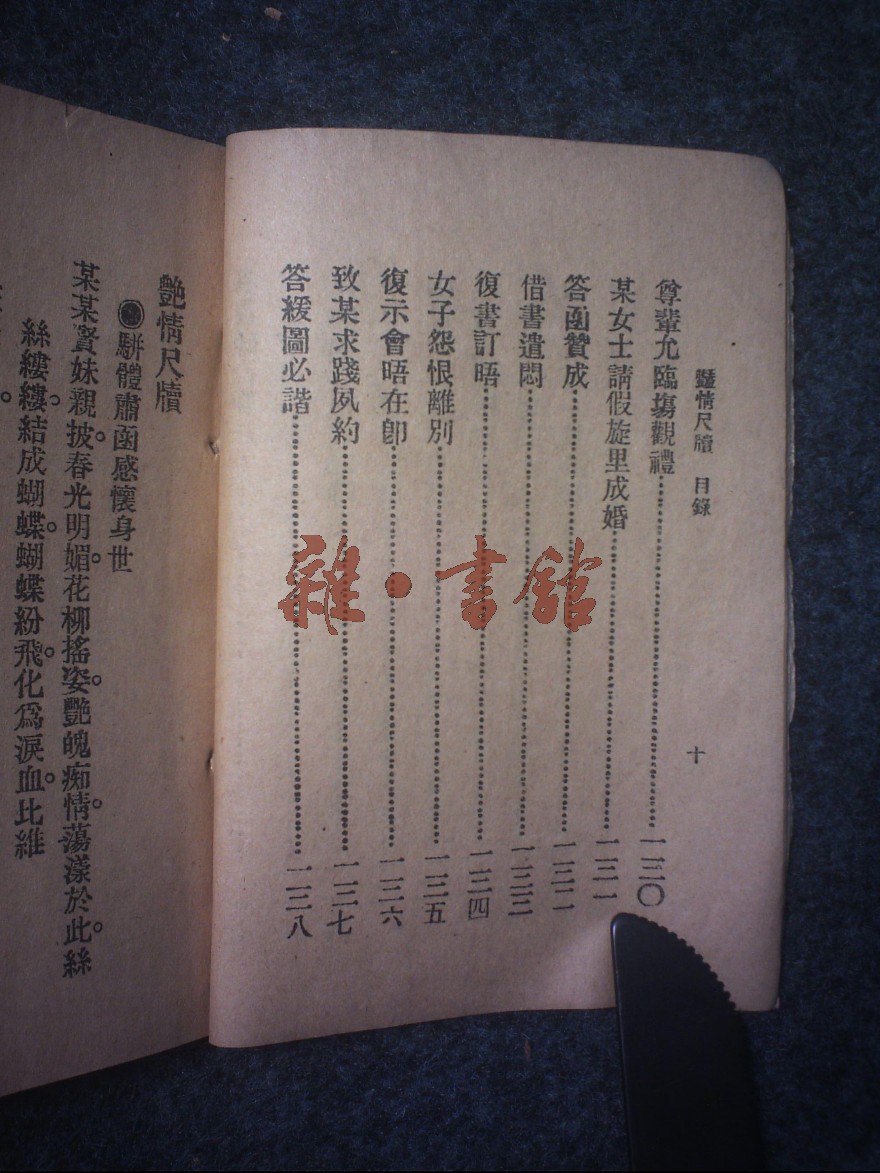 豔情尺牘 目錄
十
尊輩允臨塲觀禮……一三〇
某女士請假旋里成婚……一三一
答函贊成……一三二
借書遣悶……一三三
復書訂晤……一三四
女子怨恨離別……一三五
復示會晤在卽……一三六
致某求踐夙約……一三七
答緩圖必諧……一三八
艷情尺牘
◉駢體肅函感懷身世
某某賢妹親披。春光明媚。花柳搖姿。艷魄痴情。蕩漾於此。絲
絲縷縷。結成蝴蝶。蝴蝶紛飛。化爲淚血。比維
雜·書館